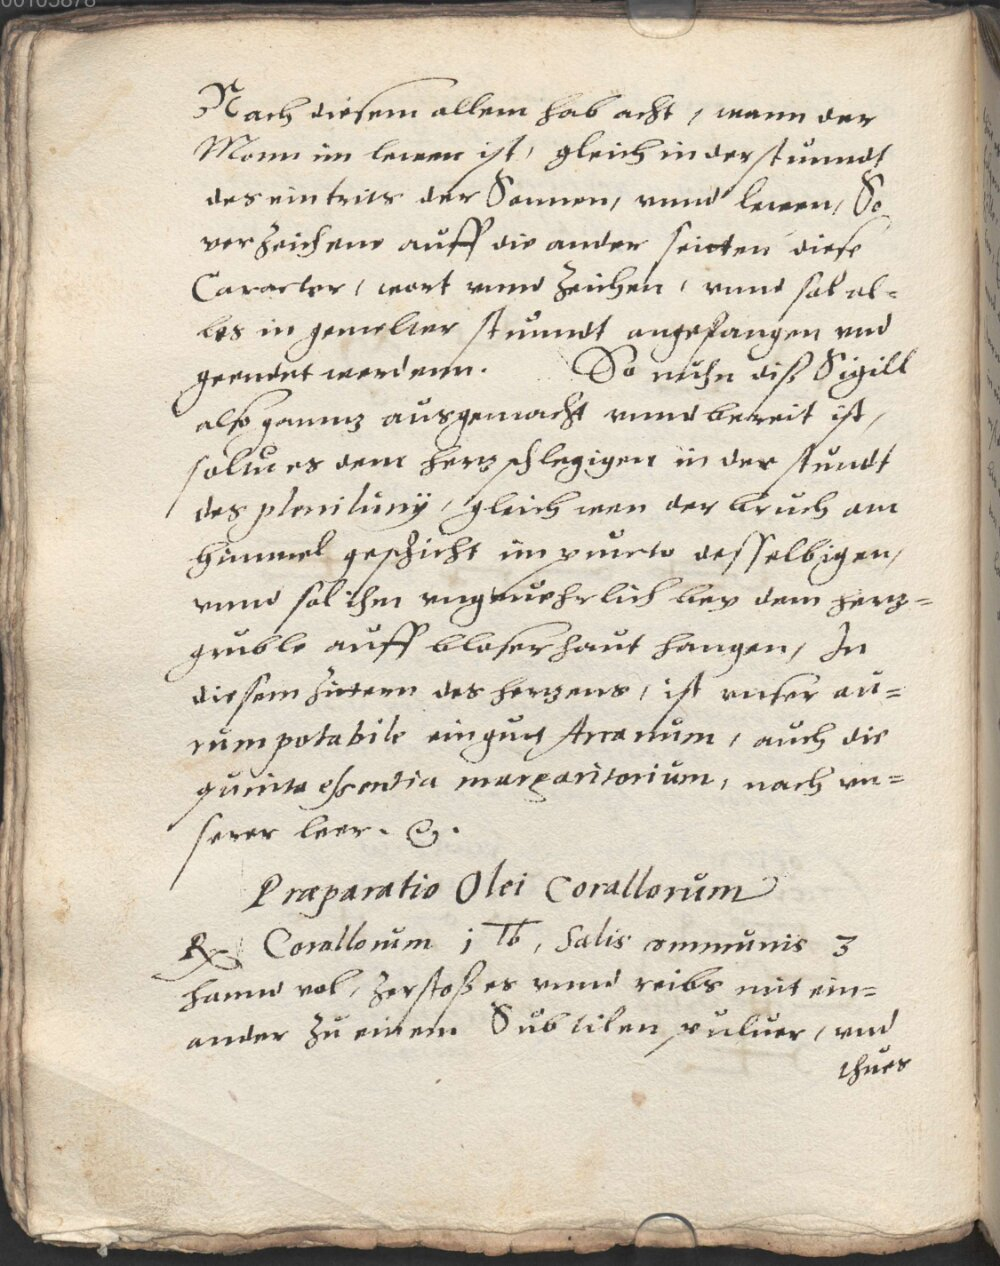 00105878
Nach diesem allem hab acht, wann der
Monn im lewen ist, gleich in der stunndt
des eintrits der Sonnen, unnd lewen, So
verzeichene auff die ander seitten diese
Caracter, wort unnd zeichen, unnd sol al=
les in gemelter stunndt angefangen und
geendet werdenn. So nuhn diß Sigill
also gannz ausgemacht unnd bereit ist,
soltu es dem herzschlegigen in der stundt
des plenilunij, gleich wen der bruch am
himmel geschicht im puncto desselbigen,
unnd sol ihm ungeuehrlich bey dem herz=
gruble auff bloser haut hangen, In
diesem zittern des herzens, ist unser au=
rum potabile ein gut Arcanum, auch die
quinta essentia margaritorium, nach un=
serer leer. &.
Præparatio Olei Corallorum
℞ Corallorum j ℔, Salis communis 3
hannd vol, zerstoß es unnd reibs mit ein=
ander zu einem Subtilen puluer, und
thues